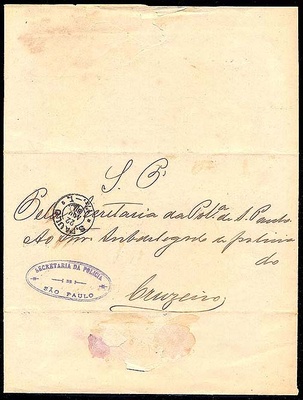 S. P.
Pela Secretaria da Pol.ª de S. Paulo
Ao Snr. Subdelegado de policia
do
Cruzeiro
S. PAULO
SECRETARIA DA POLICIA
DE
SÃO PAULO